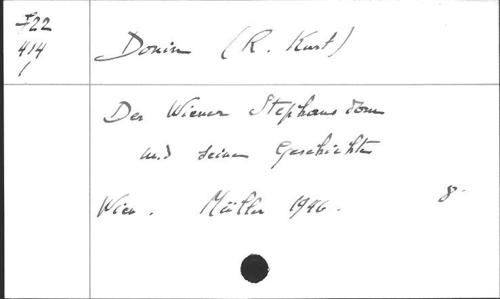 I22
414
1
Donin (R. Kurt)
Der Wiener Stephansdom
und seine Geschichte
Wien. Müller 1946. 8.